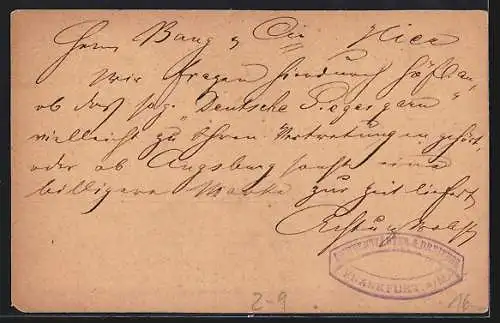 Herrn Bang & Cie Hier
Wir fragen hierdurch höfl. an,
ob das sog. "Deutsche Siegesgarn"
vielleicht zu Ihren Vertretungen gehört,
oder ob Augsburg sonst eine
billigere Marke zur Zeit liefert
FRANKFURT A/M.
2-9
16-